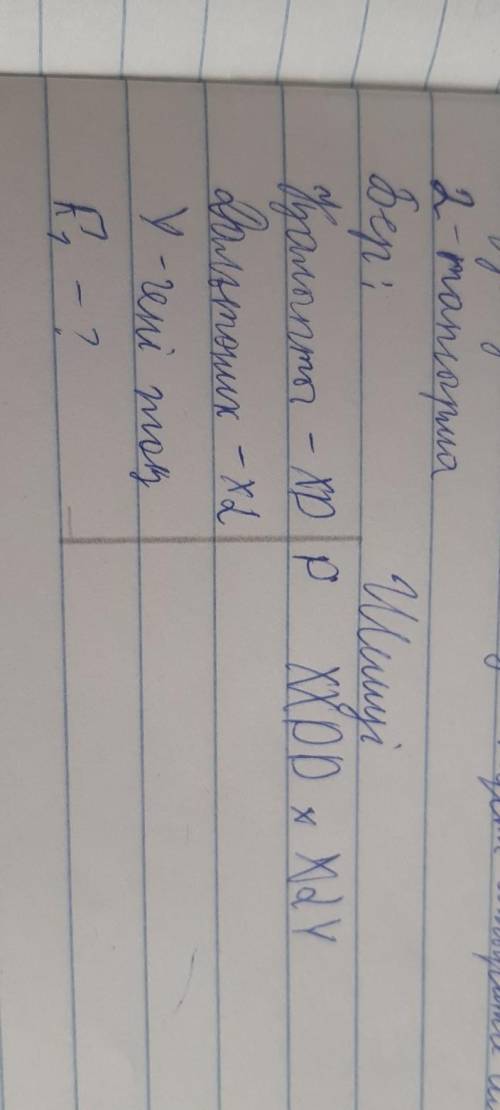 2-тапсырма
Бер:
Қалыпты - XD
Дальтоник - Xd
Y - гені жоқ
F₁ - ?
Шешуі
P XXDD × XdY